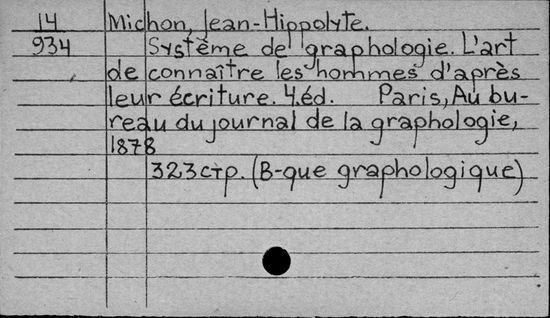 14 Michon, Jean-Hippolyte.
934 Système de graphologie. L'art
de connaître les hommes d'après
leur écriture. 4.éd. Paris, Au bu-
reau du journal de la graphologie,
1878
323стр. (B-que graphologique)